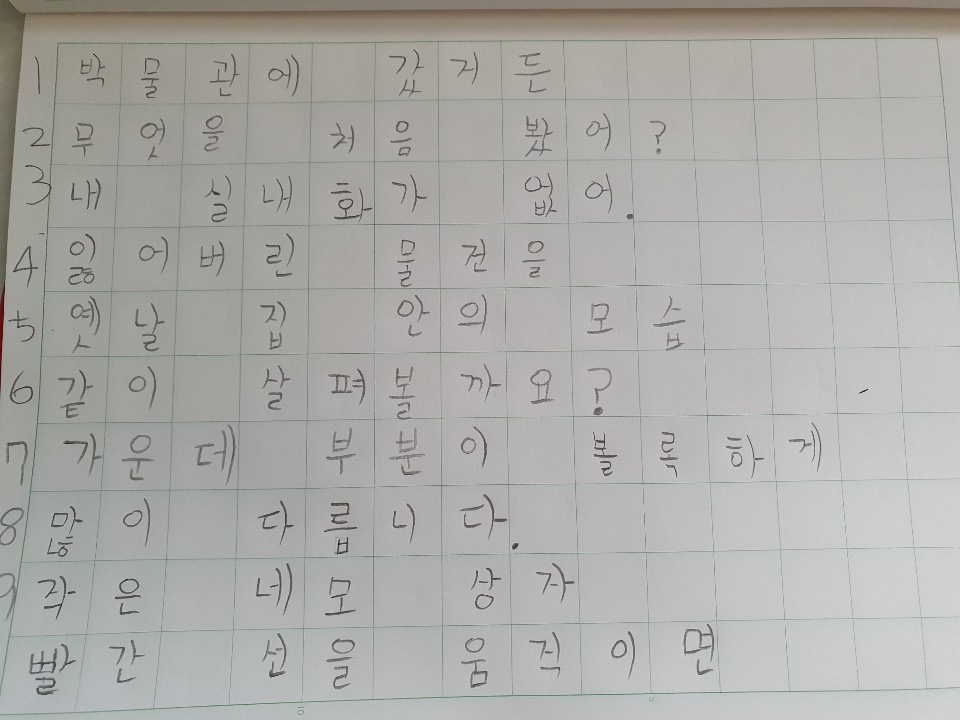 1 박물관에 갔거든
2 무엇을 처음 봤어?
3 내 실내화가 없어.
4 잃어버린 물건을
5 옛날 집 안의 모습
6 같이 살펴볼까요?
7 가운데 부분이 볼록하게
8 많이 다릅니다.
9 작은 네모 상자
빨간 선을 움직이면